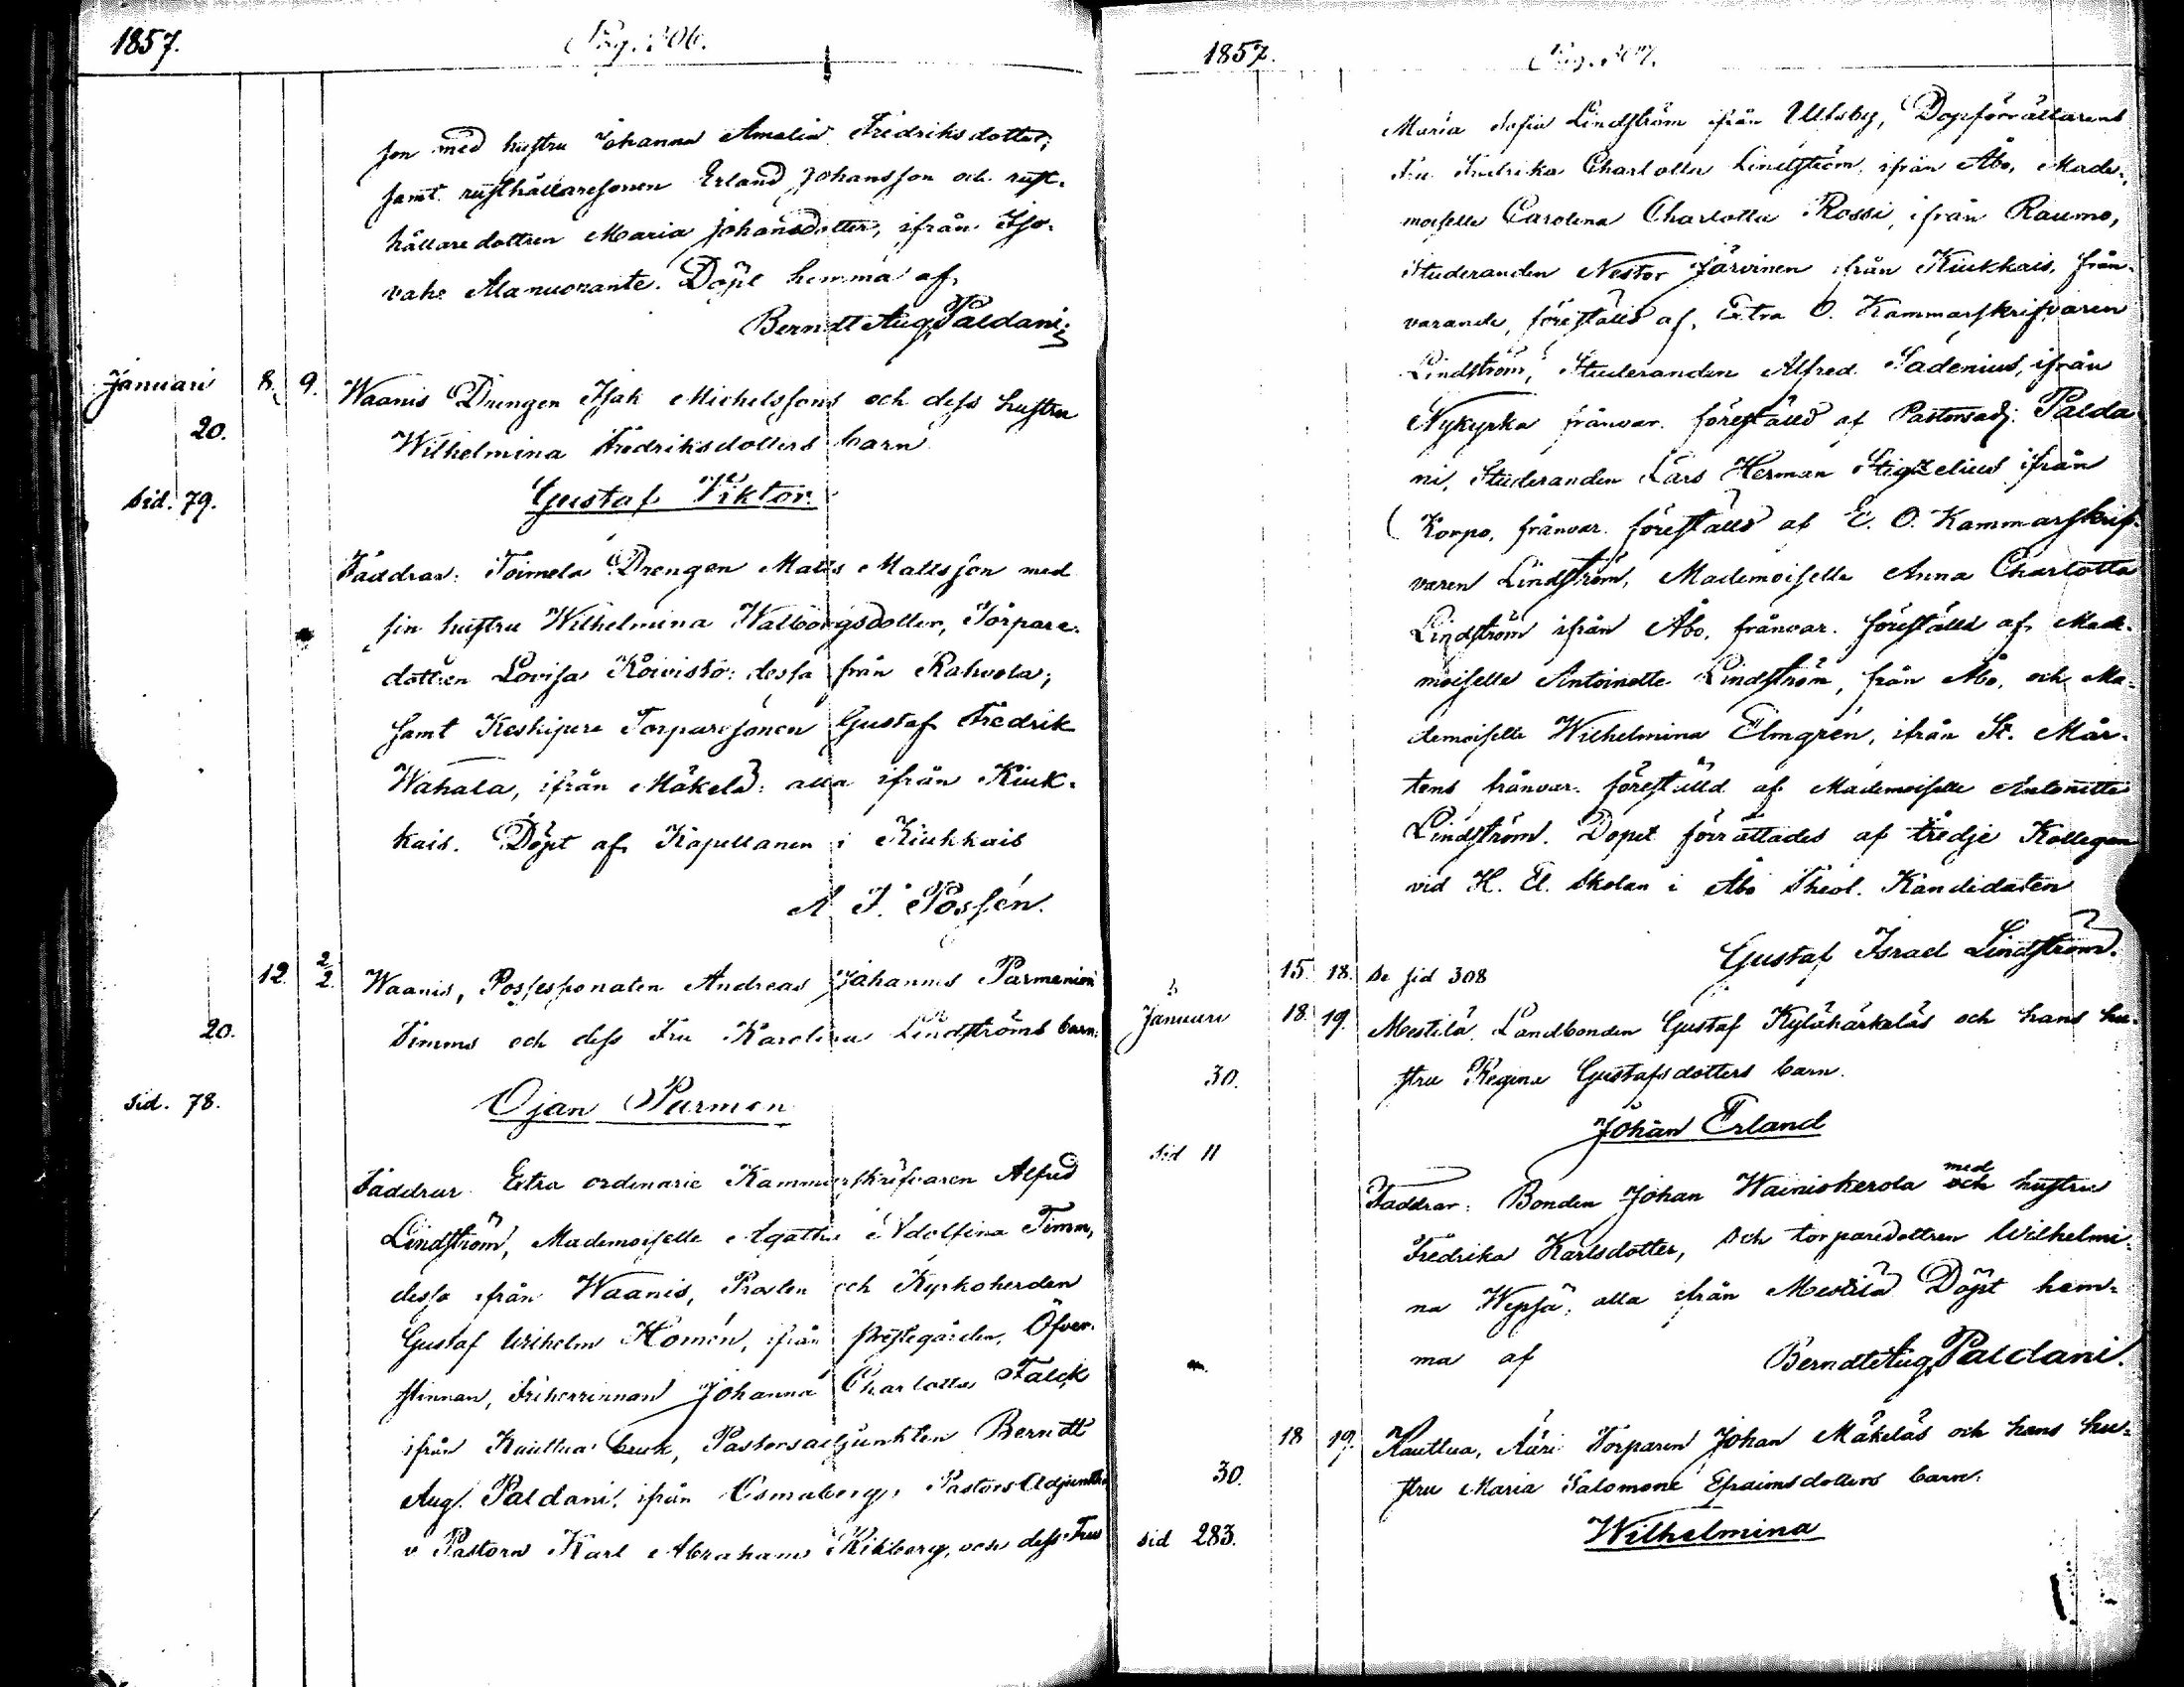 1857.
Pag. 306.
son med hustru Johanna Amalia Fredriksdotter;
samt rusthållaresonen Erland Johansson och rust-
hållaredottren Maria Johansdotter, ifrån Iso-
vahe Alanuorante. Döpt hemma af
Berndt Aug. Paldani.
Januari 8. 9. Waanis Drengen Isak Michelssons och dess hustru
20. Wilhelmina Fredriksdotters barn
Sid. 79. Gustaf Viktor.
Faddrar: Toimela Drengen Matts Mattsson med
sin hustru Wilhelmina Walborgsdotter, Torpare-
dottren Lovisa Koivisto: dessa från Rahvola;
samt Keskipere Torparesonen Gustaf Fredrik
Wahala, ifrån Mäkelä: alla ifrån Kiuk-
kais. Döpt af Kapellanen i Kiukkais
A. F. Possén.
12. 2/2. Waanis, Possessionaten Andreas Johannes Parmenion
20. Timms och dess Fru Karolina Lindströms barn:
Sid. 78. Ojan Parmen
Faddrar Extra ordinarie Kammarskrifvaren Alfred
Lindström, Mademoiselle Agatha Adolfina Timm,
dessa ifrån Waanis, Prosten och Kyrkoherden
Gustaf Wilhelm Homén, ifrån prestegården, Öfver-
stinnan, Friherrinnan Johanna Charlotta Falck
ifrån Kauttua bruk, Pastorsadjunkten Berndt
Aug. Paldani, ifrån Osmaberg, Pastors Adjunkten
v Pastorn Karl Abraham Kihlberg, och dess Fru
1857.
Pag. 307.
Maria Sofia Lindström ifrån Ulfsby, Dopförrättarens
Fru Fredrika Charlotta Lindström, ifrån Åbo, Made-
moiselle Carolina Charlotta Rossi, ifrån Raumo,
Studeranden Nestor Järvinen ifrån Kiukkais, från-
varande, föreställd af, Extra O. Kammarskrifvaren
Lindström, Studeranden Alfred Sadenius, ifrån
Nykyrka frånvar. föreställd af Pastorsadj. Palda-
ni, Studeranden Lars Herman Stigzelius ifrån
Korpo, frånvar. föreställd af E. O. Kammarskrif-
varen Lindström, Mademoiselle Anna Charlotta
Lindström ifrån Åbo, frånvar. föreställd af Made-
moiselle Antoinette Lindström, från Åbo, och Ma-
demoiselle Wilhelmina Elmgrén, ifrån St. Mår-
tens frånvar. föreställd af Mademoiselle Antoinette
Lindström. Dopet förrättades af tredje Kollegan
vid H. El. Skolan i Åbo Theol. Kandidaten
Gustaf Israel Lindström.
15. 18. Se sid 308
Januari 18. 19. Mestilä Landbonden Gustaf Kylähärkäläs och hans hu-
30. stru Regina Gustafsdotters barn.
Johan Erland
Sid 11
Faddrar: Bonden Johan Wainiokerola med och hustru
Fredrika Karlsdotter, och torparedottren Wilhelmi-
na Wepsä, alla ifrån Mestilä Döpt hem-
ma af Berndt Aug. Paldani.
18 19. Kauttua, Äüri Torparen Johan Mäkeläs och hans hu-
30. stru Maria Salomone Efraimsdotters barn.
Sid 283. Wilhelmina